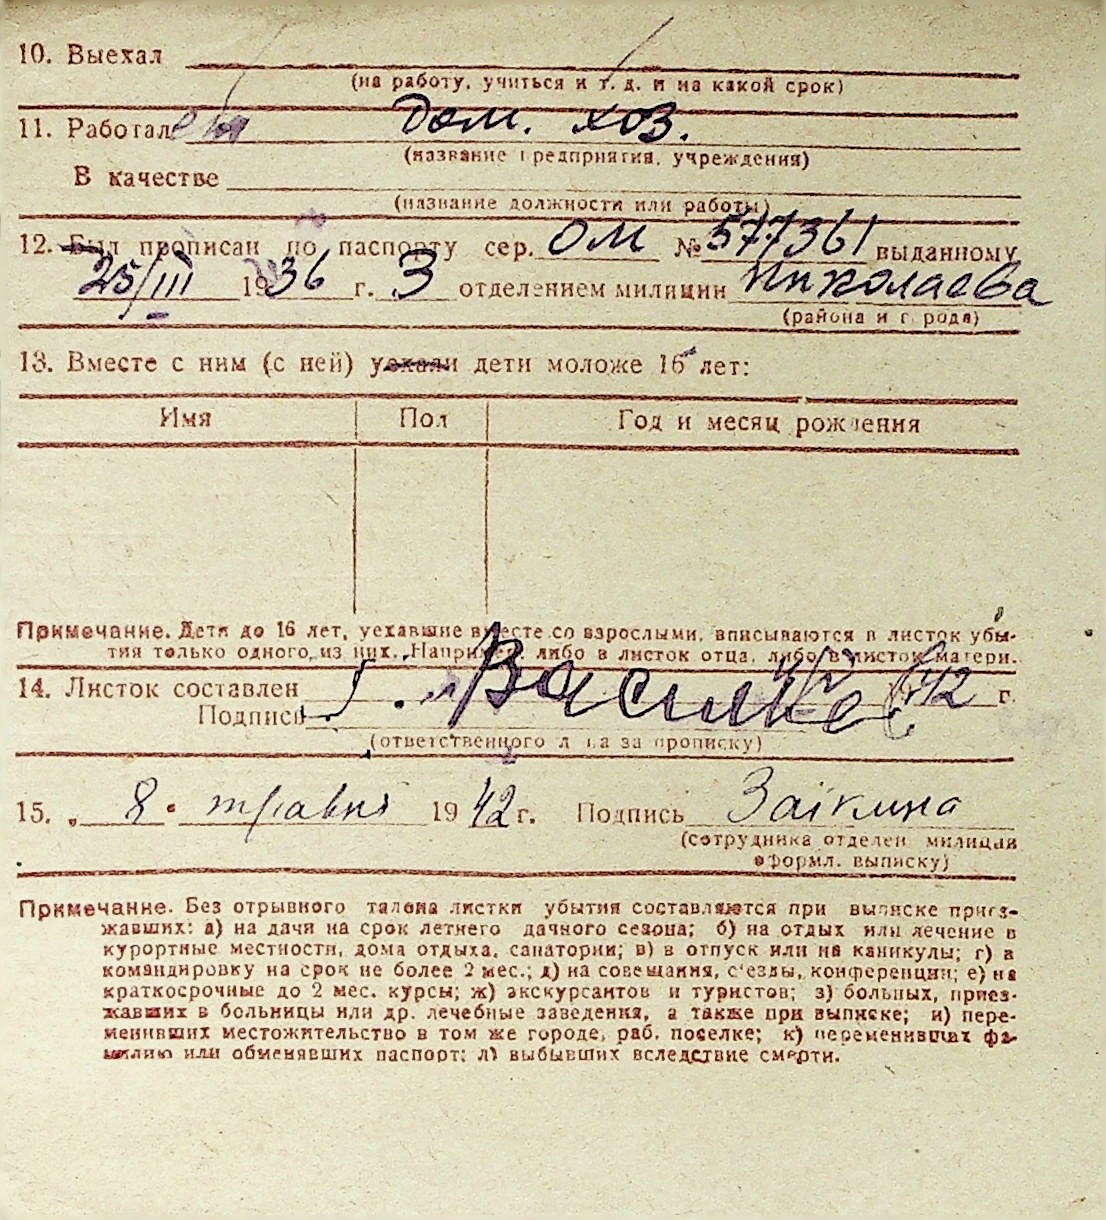 10. Выехал
(на работу, учиться и т. д. и на какой срок)
11. Работал дом. хоз.
(название предприятия, учреждения)
В качестве
(название должности или работы)
12. Был прописан по паспорту сер. ОМ № 577361 выданному
25/III 1936 г. 3 отделением милиции Николаева
(района и города)
13. Вместе с ним (с ней) уехали дети моложе 16 лет:
Имя Пол Год и месяц рождения
Примечание. Дети до 16 лет, уехавшие вместе со взрослыми, вписываются в листок убы-
тия только одного из них. Например, либо в листок отца, либо в листок матери.
14. Листок составлен 42 г.
Подпись
(ответственного лица за прописку)
15. „ 8 " травня 1942 г. Подпись Заікина
(сотрудника отделен. милиции
оформл. выписку)
Примечание. Без отрывного талона листки убытия составляются при выписке приез-
жавших: а) на дачи на срок летнего дачного сезона; б) на отдых или лечение в
курортные местности, дома отдыха, санатории; в) в отпуск или на каникулы; г) в
командировку на срок не более 2 мес.; д) на совещания, с'езды, конференции; е) на
краткосрочные до 2 мес. курсы; ж) экскурсантов и туристов; з) больных, приез-
жавших в больницы или др. лечебные заведения, а также при выписке; и) пере-
менивших местожительство в том же городе, раб. поселке; к) переменивших фа-
милию или обменявших паспорт; л) выбывших вследствие смерти.